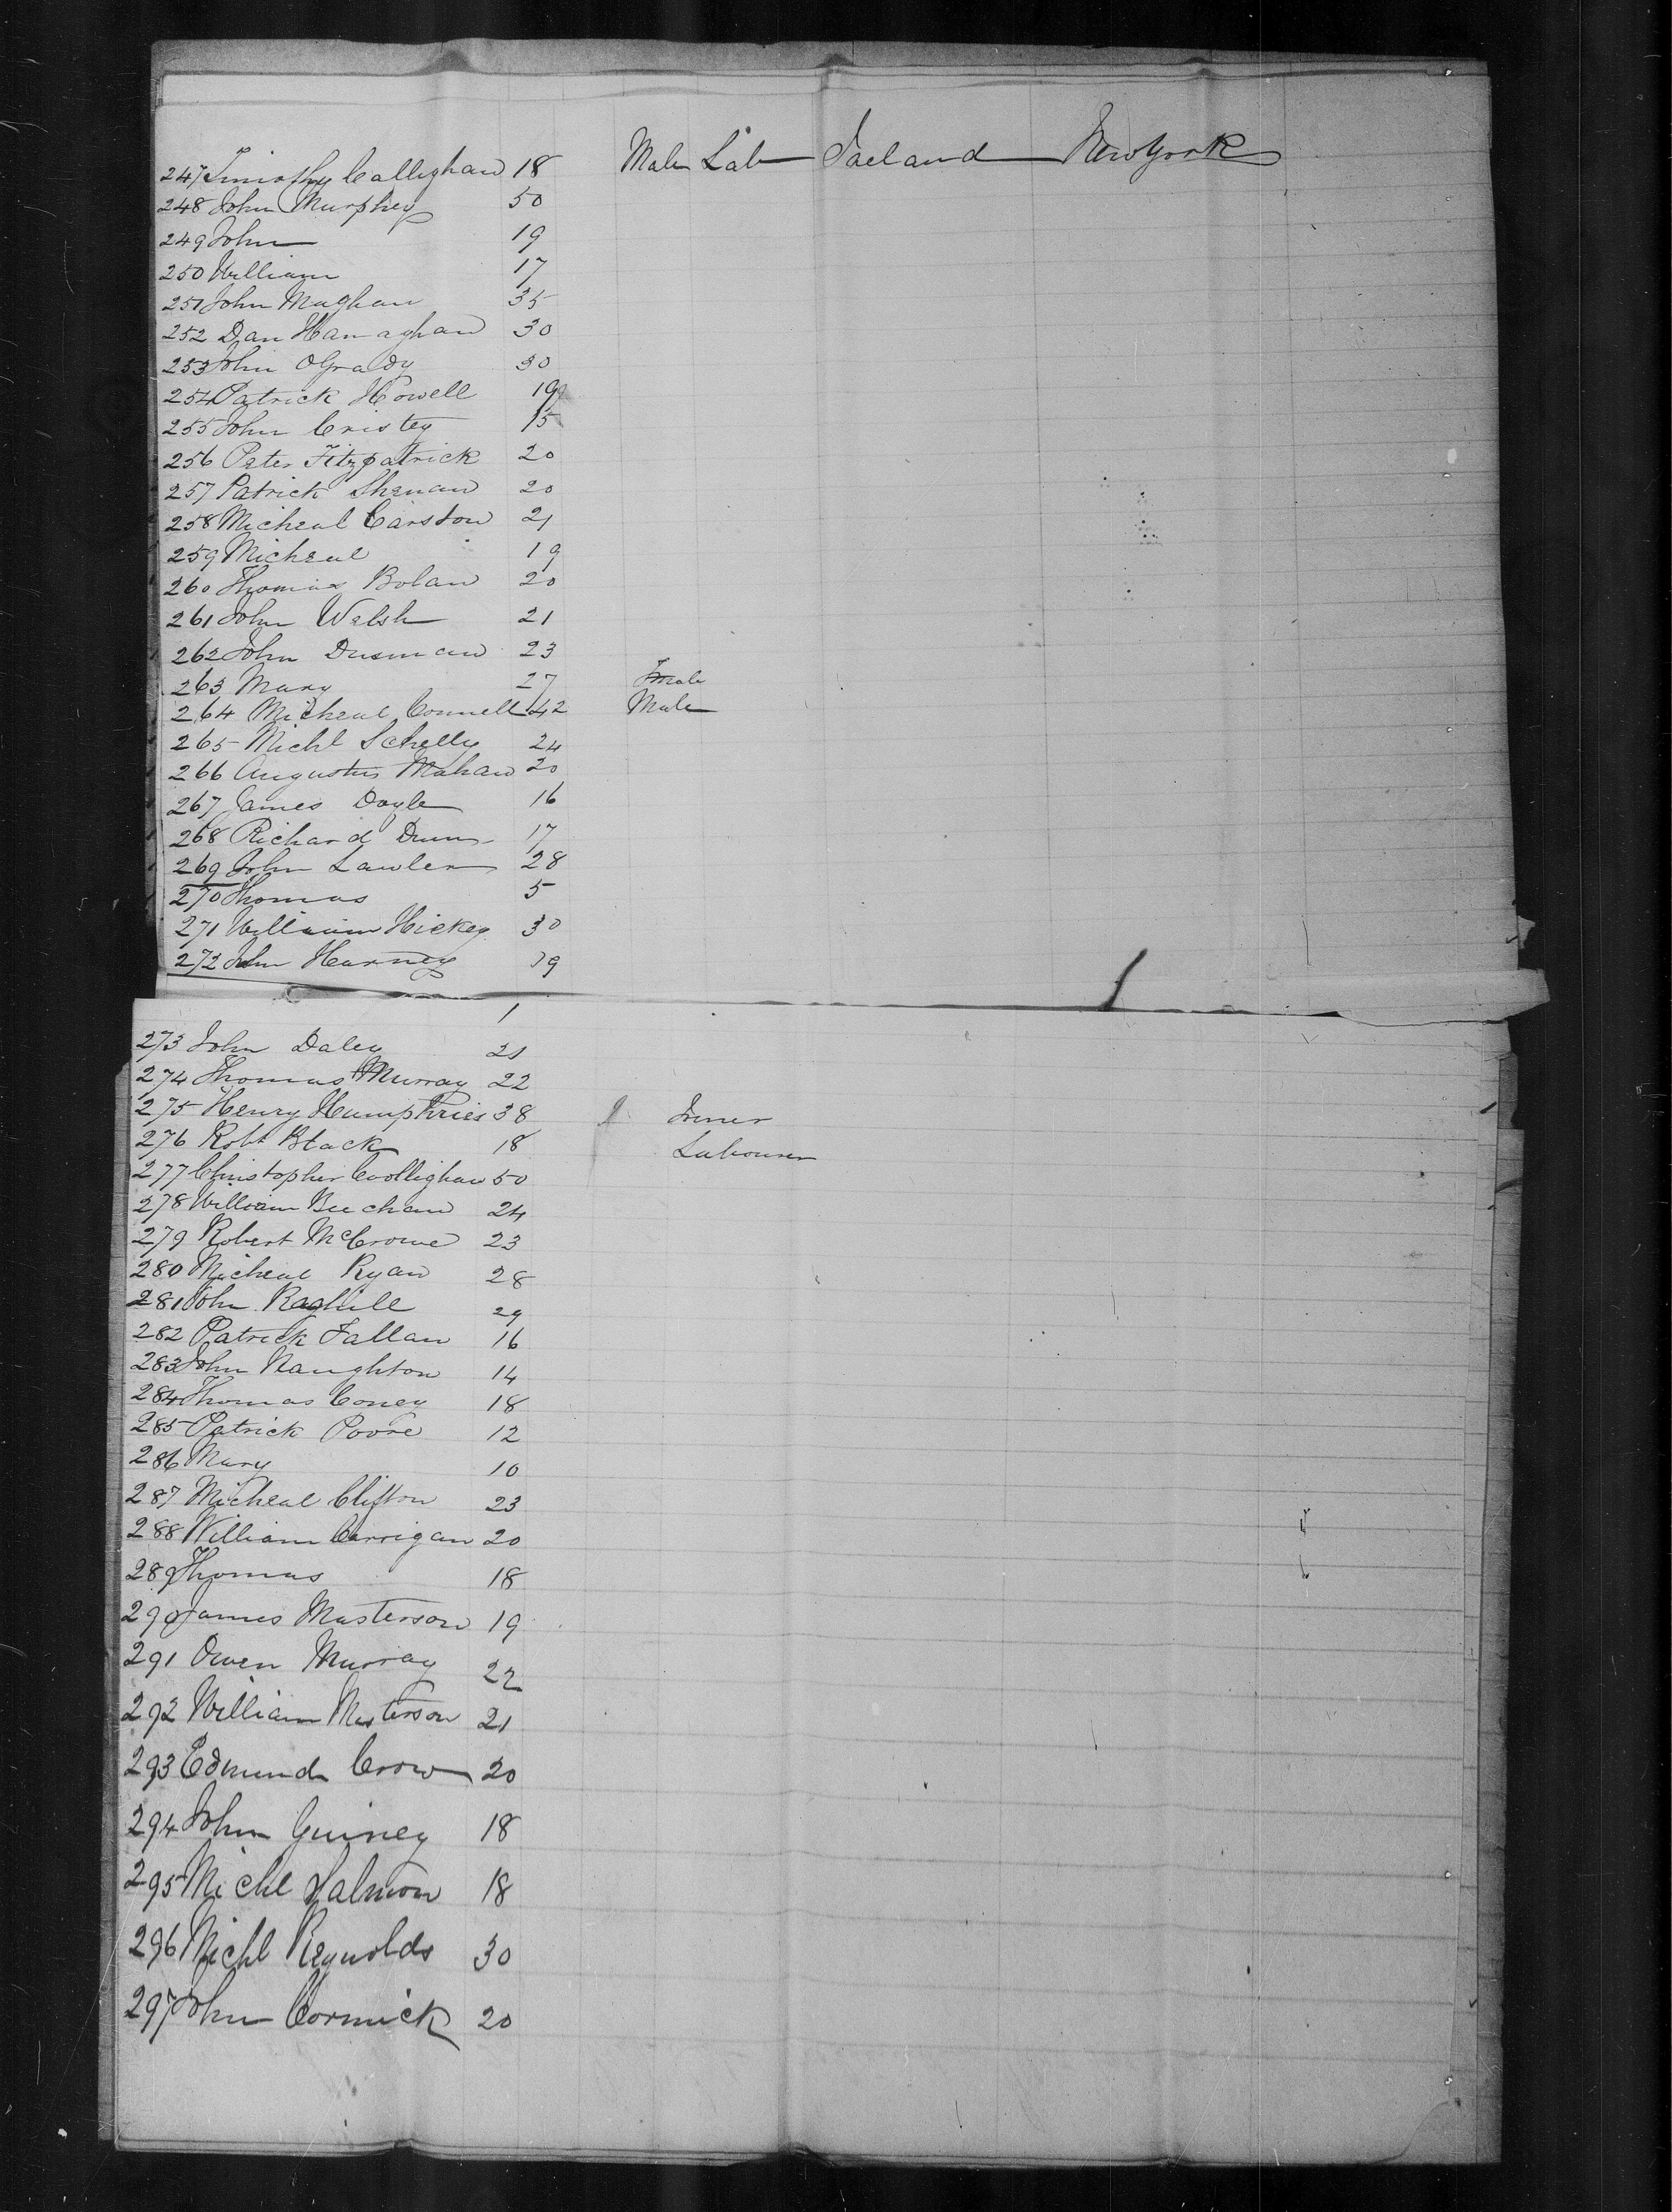 247 Timothy Callighan 18 Male Lab Ireland New York
248 John Murphey 50
249 John 19
250 William 17
251 John Maghan 35
252 Dan Hanaghan 30
253 John OGrady 30
254 Patrick Howell 19
255 John Cristey 15
256 Peter Fitzpatrick 20
257 Patrick Shenan 20
258 Micheal Carston 21
259 Micheal 19
260 Thomas Bolan 20
261 John Welsh 21
262 John Dusman 23
263 Mary 27 Female
264 Micheal Connell 42 Male
265 Michl Schelly 24
266 Augustus Mahan 20
267 James Doyle 16
268 Richard 17
269 John Lawler 28
270 Thomas 5
271 William Hickey 30
272 John Harney 19
273 John Daley 21
274 Thomas Murray 22
275 Henry Humphries 38
276 Robt Black 18 Labourer
277 Christopher Coollighan 50
278 William Buchan 24
279 Robert McCrowe 23
280 Micheal Ryan 28
281 John Raghill 29
282 Patrick Fallan 16
283 John Naughton 14
284 Thomas Coney 18
285 Patrick Poore 12
286 Mary 10
287 Micheal Clifton 23
288 William Carrigan 20
289 Thomas 18
290 James Masterson 19
291 Owen Murray 22
292 William Masterson 21
293 Edmund Crow 20
294 John Guiney 18
295 Michl Salmon 18
296 Michl Reynolds 30
297 John Cormick 20